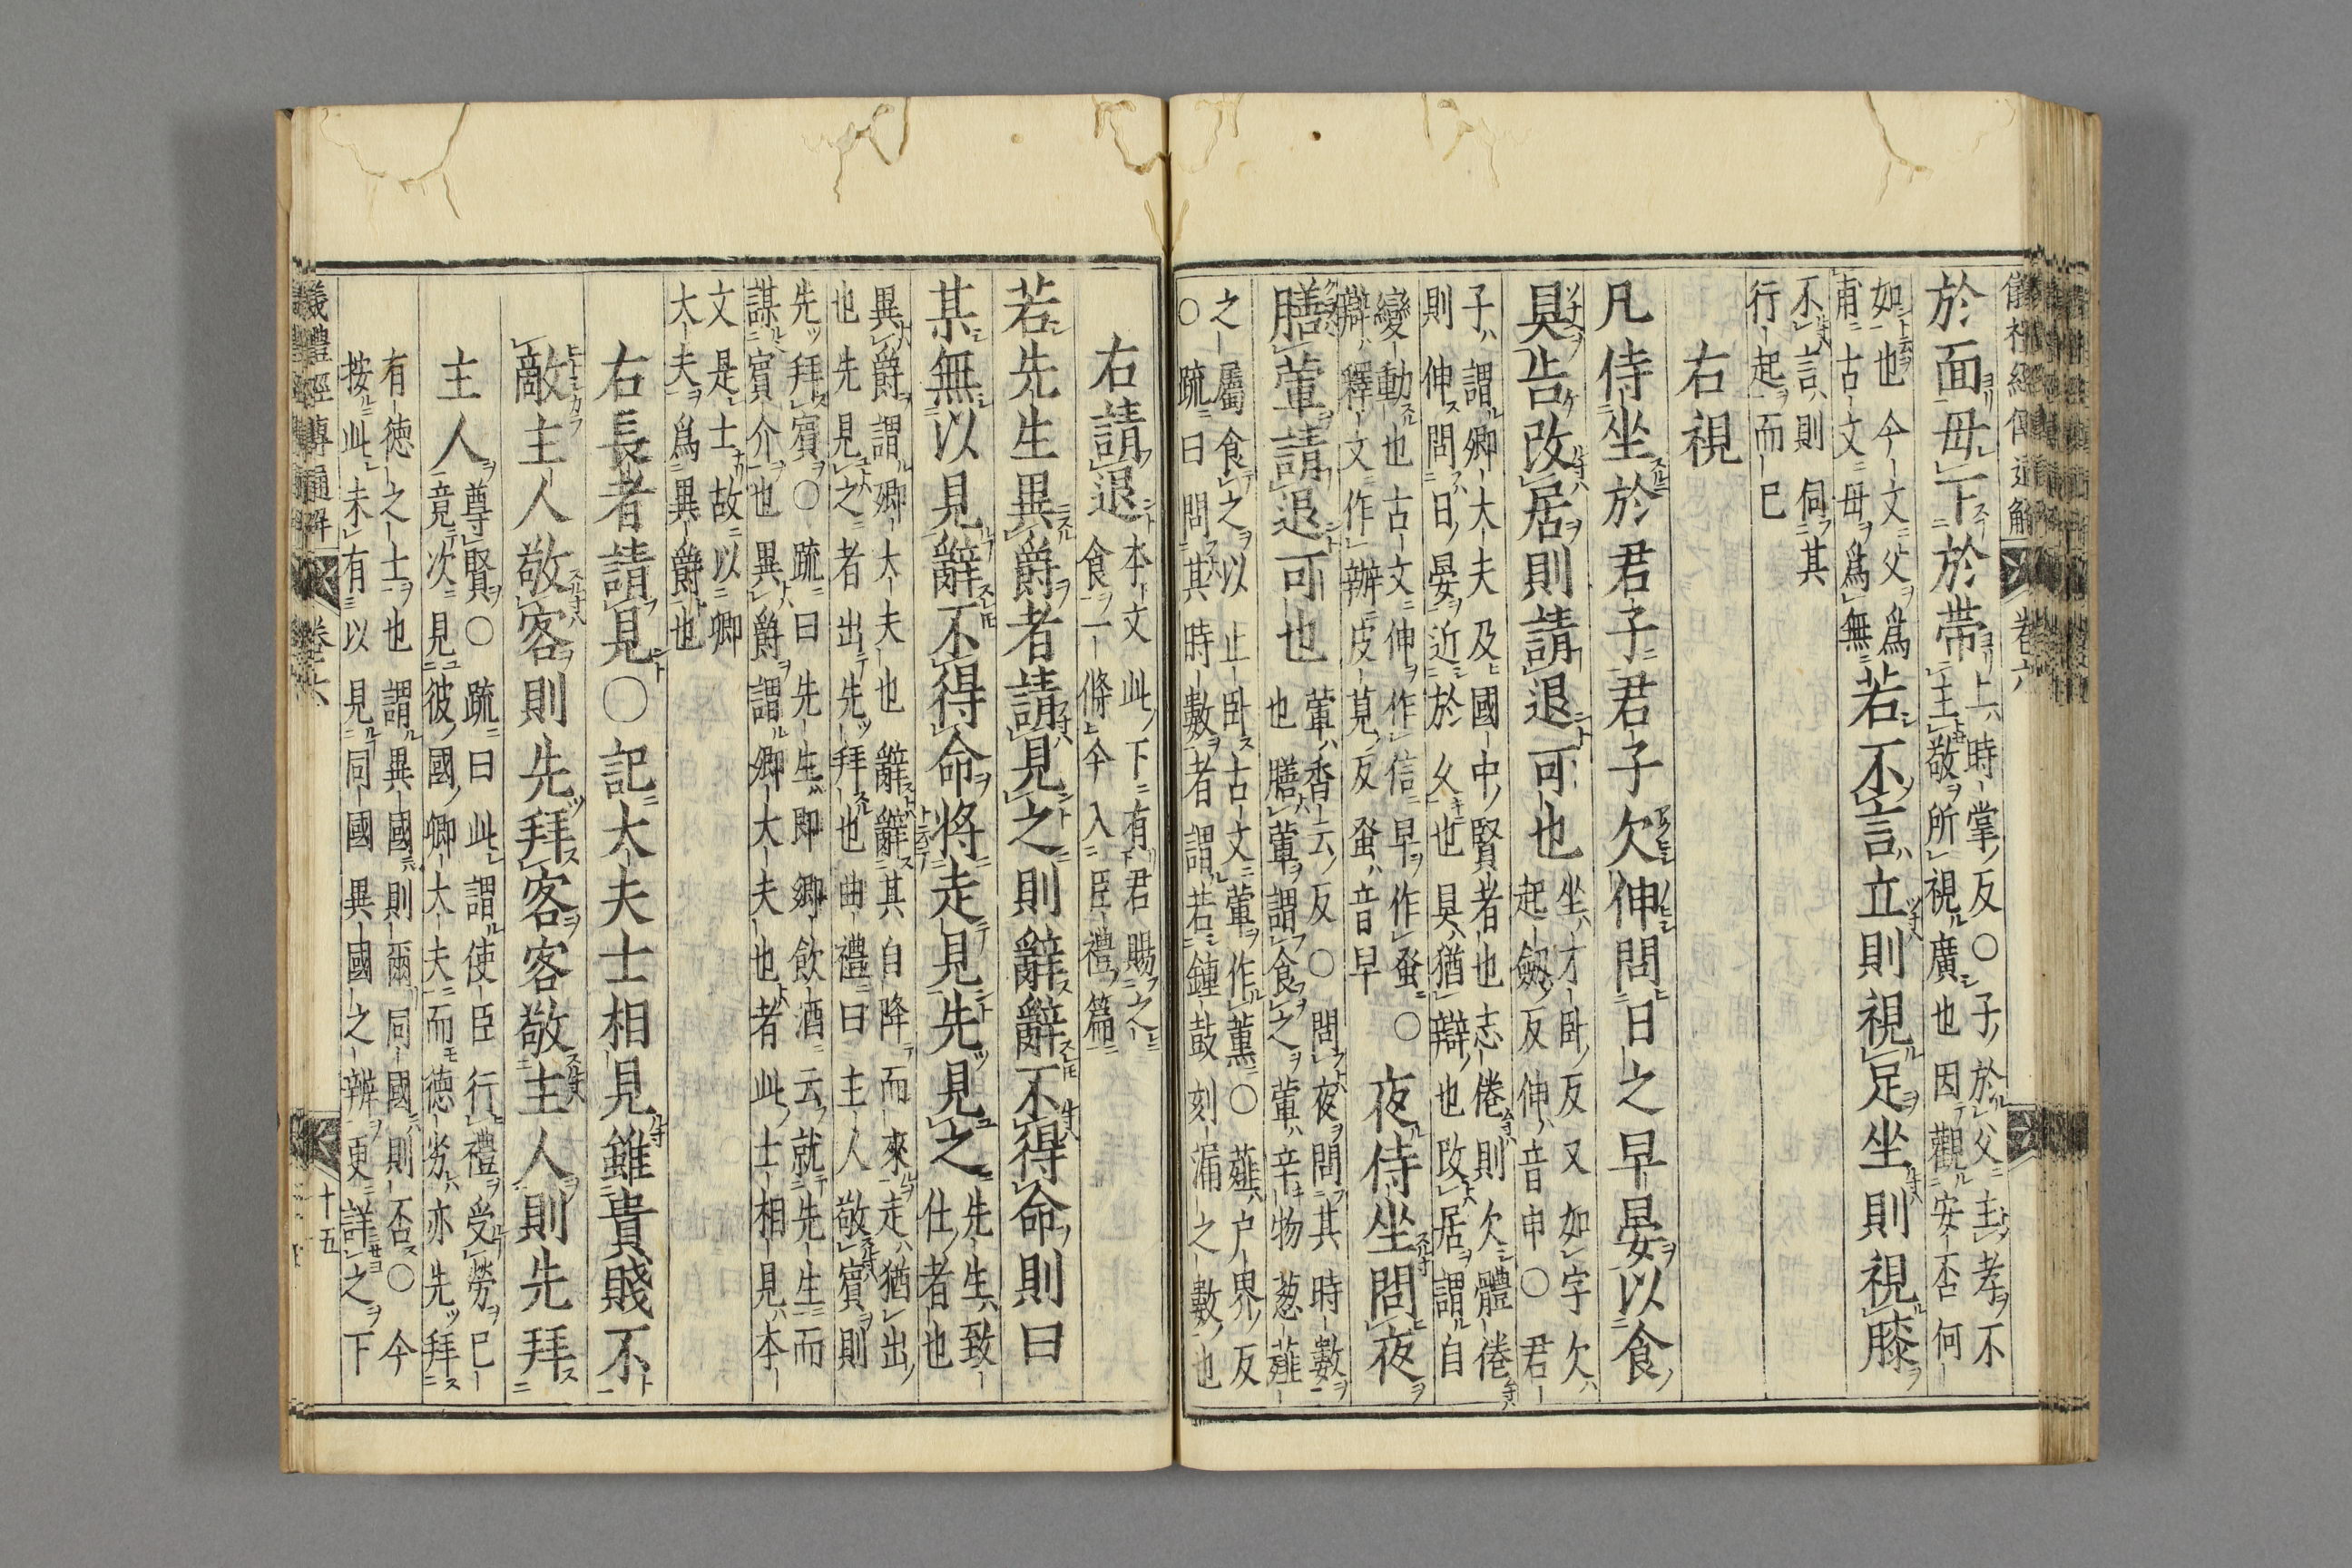 儀禮經傳通解
卷六
於面毋下於帶上時掌反○子於父主孝不
主敬所視廣也因觀安否何
如也今文父爲
甫古文毋爲無
若不言立則視足坐則視膝
不言則伺其
行起而已
右視
凡侍坐於君子君子欠伸問日之早晏以食
具告改居則請退可也
坐才卧反又如字欠
起劒反伸音申○君
子謂卿大夫及國中賢者也志倦則欠體倦
則伸問日晏近於久也具猶辯也改居謂自
變動也古文伸作信早作蚤○
辯釋文作辦皮莧反蚤音早
夜侍坐問夜
膳葷請退可也
葷香云反○問夜問其時數
也膳葷謂食之葷辛物葱薤
之屬食之以止卧古文葷作薰○薤户界反
○疏曰問其時數者謂若鍾鼓刻漏之數也
右請退
本文此下有君賜之
食一條今入臣禮篇
若先生異爵者請見之則辭辭不得命則曰
某無以見辭不得命將走見先見之
先生致
仕者也
異爵謂卿大夫也辭辭其自降而來走猶出
也先見之者出先拜也曲禮曰主人敬賓則
先拜賓○疏曰先生即卿飲酒云就先生而
謀賓介也異爵謂卿大夫也者此士相見本
文是士故以卿
大夫爲異爵也
右長者請見○記大夫士相見雖貴賤不
敵主人敬客則先拜客客敬主人則先拜
主人
尊賢○疏曰此謂使臣行禮受勞已
竟次見彼國卿大夫而德劣亦先拜
有德之士也謂異國則爾同國則否○今
按此未有以見同國異國之辨更詳之下
儀禮經傳通解
卷六
十五